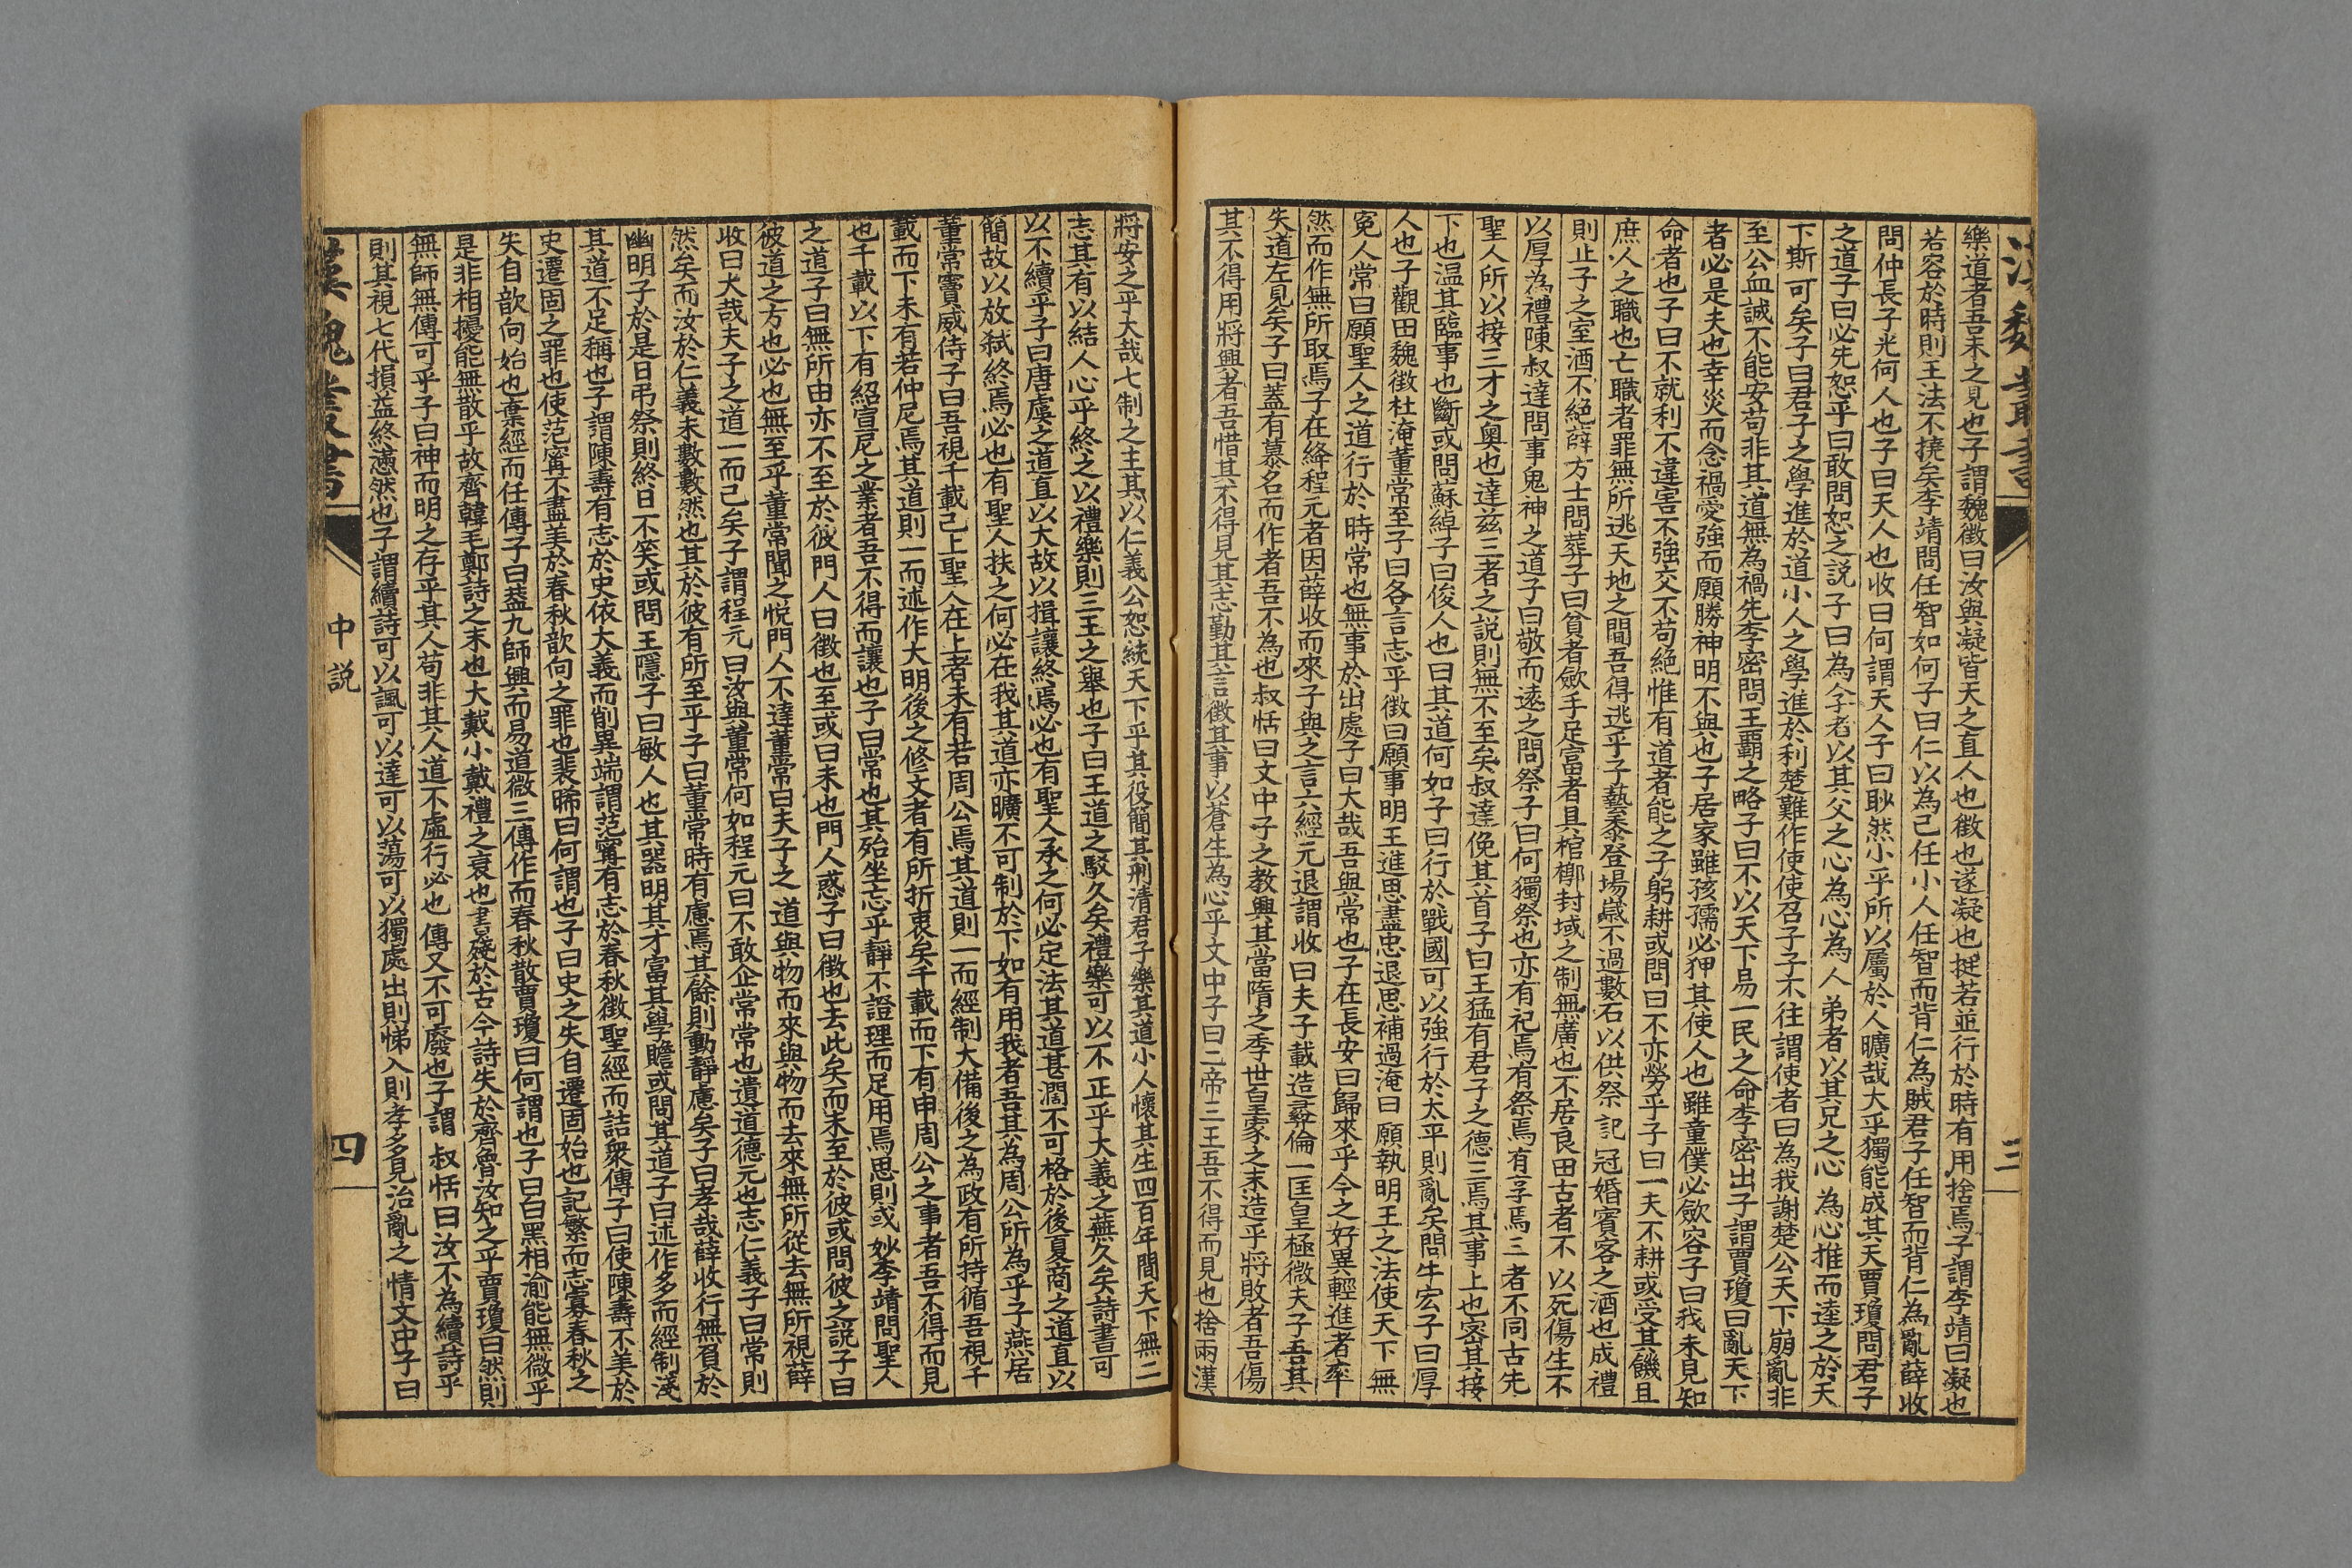 漢魏叢書
三
樂道者吾未之見也子謂魏徵曰汝與凝皆天之直人也徵也遂凝也挺若並行於時有用捨焉子謂李靖曰凝也
若容於時則王法不撓矣李靖問任智如何子曰仁以為己任小人任智而背仁為賊君子任智而背仁為亂薛收
問仲長子光何人也子曰天人也收曰何謂天人子曰眇然小乎所以屬於人曠哉大乎獨能成其天賈瓊問君子
之道子曰必先恕乎曰敢問恕之說子曰為子者以其父之心為心為人弟者以其兄之心為心推而達之於天
下斯可矣子曰君子之學進於道小人之學進於利楚難作使使召子子不往謂使者曰為我謝楚公天下崩亂非
至公血誠不能安苟非其道無為禍先李密問王霸之略子曰不以天下易一民之命李密出子謂賈瓊曰亂天下
者必是夫也幸災而念禍愛強而願勝神明不與也子居家雖孩孺必狎其使人也雖童僕必斂容子曰我未見知
命者也子曰不就利不違害不強交不苟絕惟有道者能之子躬耕或問曰不亦勞乎子曰一夫不耕或受其饑且
庶人之職也亡職者罪無所逃天地之間吾得逃乎子藝黍登場歲不過數石以供祭記冠婚賓客之酒也成禮
則止子之室酒不絕薛方士問葬子曰貧者斂手足富者具棺槨封域之制無廣也不居良田古者不以死傷生不
以厚為禮陳叔達問事鬼神之道子曰敬而遠之問祭子曰何獨祭也亦有祀焉有祭焉有享焉三者不同古先
聖人所以接三才之奧也達茲三者之說則無不至矣叔達俛其首子曰王猛有君子之德三焉其事上也密其接
下也温其臨事也斷或問蘇綽子曰俊人也曰其道何如子曰行於戰國可以強行於太平則亂矣問牛宏子曰厚
人也子觀田魏徵杜淹董常至子曰各言志乎徵曰願事明王進思盡忠退思補過淹曰願執明王之法使天下無
冤人常曰願聖人之道行於時常也無事於出處子曰大哉吾與常也子在長安曰歸來乎今之好異輕進者率
然而作無所取焉子在絳程元者因薛收而來子與之言六經元退謂收曰夫子載造彝倫一匡皇極微夫子吾其
失道左見矣子曰蓋有慕名而作者吾不為也叔恬曰文中子之教興其當隋之季世皇家之末造乎將敗者吾傷
其不得用將興者吾惜其不得見其志勤其言徵其事以蒼生為心乎文中子曰二帝三王吾不得而見也捨兩漢
將安之乎大哉七制之主其以仁義公恕統天下乎其役簡其刑清君子樂其道小人懷其生四百年間天下無二
志其有以結人心乎終之以禮樂則三王之舉也子曰王道之駁久矣禮樂可以不正乎大義之蕪久矣詩書可
以不續乎子曰唐虞之道直以大故以揖讓終焉必也有聖人承之何必定法其道甚濶不可格於後夏商之道直以
簡故以放弒終焉必也有聖人扶之何必在我其道亦曠不可制於下如有用我者吾其為周公所為乎子燕居
董常竇威侍子曰吾視千載已上聖人在上者未有若周公焉其道則一而經制大備後之為政有所持循吾視千
載而下未有若仲尼焉其道則一而述作大明後之修文者有所折衷矣千載而下有申周公之事者吾不得而見
也千載以下有紹宣尼之業者吾不得而讓也子曰常也其殆坐忘乎靜不證理而足用焉思則或妙李靖問聖人
之道子曰無所由亦不至於彼門人曰徵也至或曰未也門人惑子曰徵也去此矣而未至於彼或問彼之說子曰
彼道之方也必也無至乎董常聞之悅門人不達董常曰夫子之道與物而來與物而去來無所從去無所視薛
收曰大哉夫子之道一而已矣子謂程元曰汝與董常何如程元曰不敢企常常也遺道德元也志仁義子曰常則
然矣而汝於仁義未數數然也其於彼有所至乎子曰董常時有慮焉其餘則動靜慮矣子曰孝哉薛收行無負於
幽明子於是日弔祭則終日不笑或問王隱子曰敏人也其器明其才富其學贍或問其道子曰述作多而經制淺
其道不足稱也子謂陳壽有志於史依大義而削異端謂范寗有志於春秋徵聖經而詰衆傳子曰使陳壽不美於
史遷固之罪也使范寗不盡美於春秋歆向之罪也裴晞曰何謂也子曰史之失自遷固始也記繁而志寡春秋之
失自歆向始也棄經而任傳子曰葢九師興而易道微三傳作而春秋散賈瓊曰何謂也子曰白黑相渝能無微乎
是非相擾能無散乎故齊韓毛鄭詩之末也大戴小戴禮之衰也書殘於古今詩失於齊魯汝知之乎賈瓊曰然則
無師無傳可乎子曰神而明之存乎其人苟非其人道不虛行必也傳又不可廢也子謂叔恬曰汝不為續詩乎
則其視七代損益終懣然也子謂續詩可以諷可以達可以蕩可以獨處出則悌入則孝多見治亂之情文中子曰
漢魏叢書
中説
四